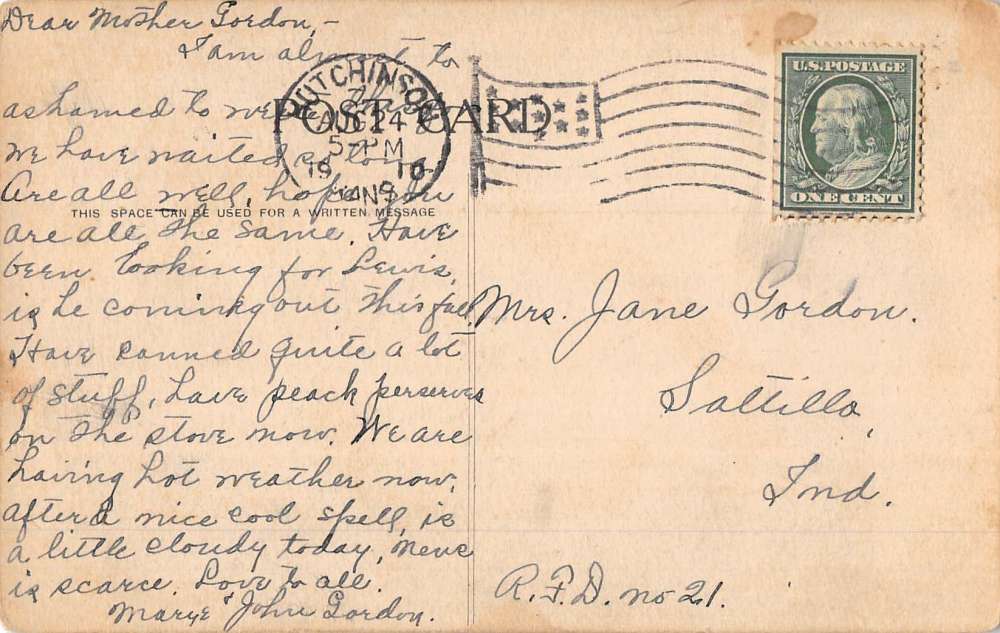 Dear Mother Gordon,-
I am almost to
ashamed to write
we have waited so long
Are all well, hope you
are all the same. Have
been looking for Lewis,
is he coming out this fall.
Have canned quite a lot
of stuff, have peach perserves
on the stove now. We are
having hot weather now,
after a nice cool spell, is
a little cloudy today, news
is scarce. Love to all.
Mary & John Gordon.
POST CARD
THIS SPACE CAN BE USED FOR A WRITTEN MESSAGE
HUTCHINSON
AUG 24
5-PM
1910
KANS
U.S. POSTAGE
ONE CENT
Mrs. Jane Gordon.
Saltillo,
Ind.
R.F.D. no 21.